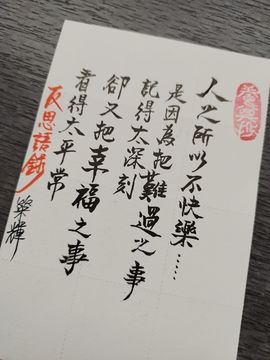 人之所以不快樂……
是因為把難過之事
記得太深刻
卻又把幸福之事
看得太平常
反思語錄
樂輝